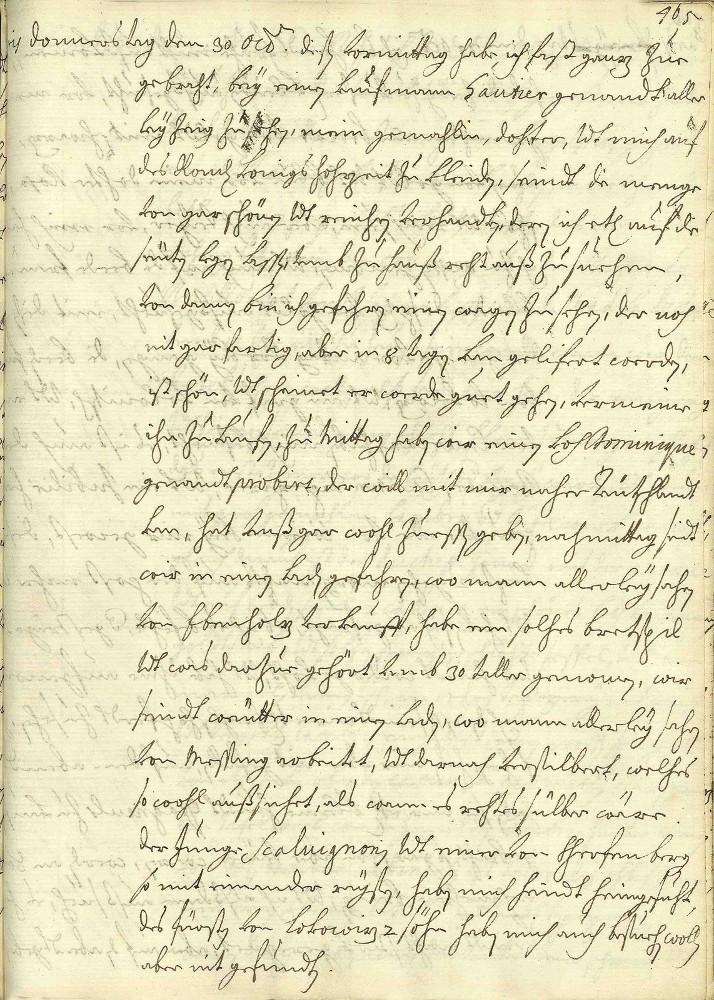 465
donnerstag dem 30 Octr. disß vormittag habe ich fast gantz zue
gebracht, beÿ einen kaufmann Gautier genandt aller
leÿ zeig zu sehen, mein gemahlin, dohter, undt mich auf
des Röm: Konigs hohzeit zu kleiden, seindt de menge
von gar schönen undt reichen verhandten, deren ich etl: auf de
seüten legen lassen, umb zu hauß reht auß zu suchen,
von dannen bin ich gefahren einen wagen zu sehen, der noh
nit gar fertig, aber in 8 tagen kan gelifert werden,
ist schön, undt scheinet er werde guet gehen, vermeine
ihn zu kaufen, zu Mittag haben wir einen koh Dominique
genandt probirt, der will mit mir naher Teütschlandt
kan, hat unß gar wohl zu essen geben, nahmittag seindt
wir in einen laden gefahren, wo mann allerleÿ sahen
von Ebenholz verkaufft, habe ein solhes bretspil
undt was darzue gehört umb 30 taller genomen, wir
seindt weütter in einen laden, wo mann allerleÿ sahen
von Messing arbeitet, undt darnah versilbert, welhes
so wohl außsihet, als wann es rehtes silber wäre.
der junge Scalvignoni undt einer von Sherfenberg
so mit einander reÿsen, haben mich heindt heimgesucht,
des fürsten von Lokowiz 2 söhn haben mich auch besuchen wollen
aber nit gefunden.